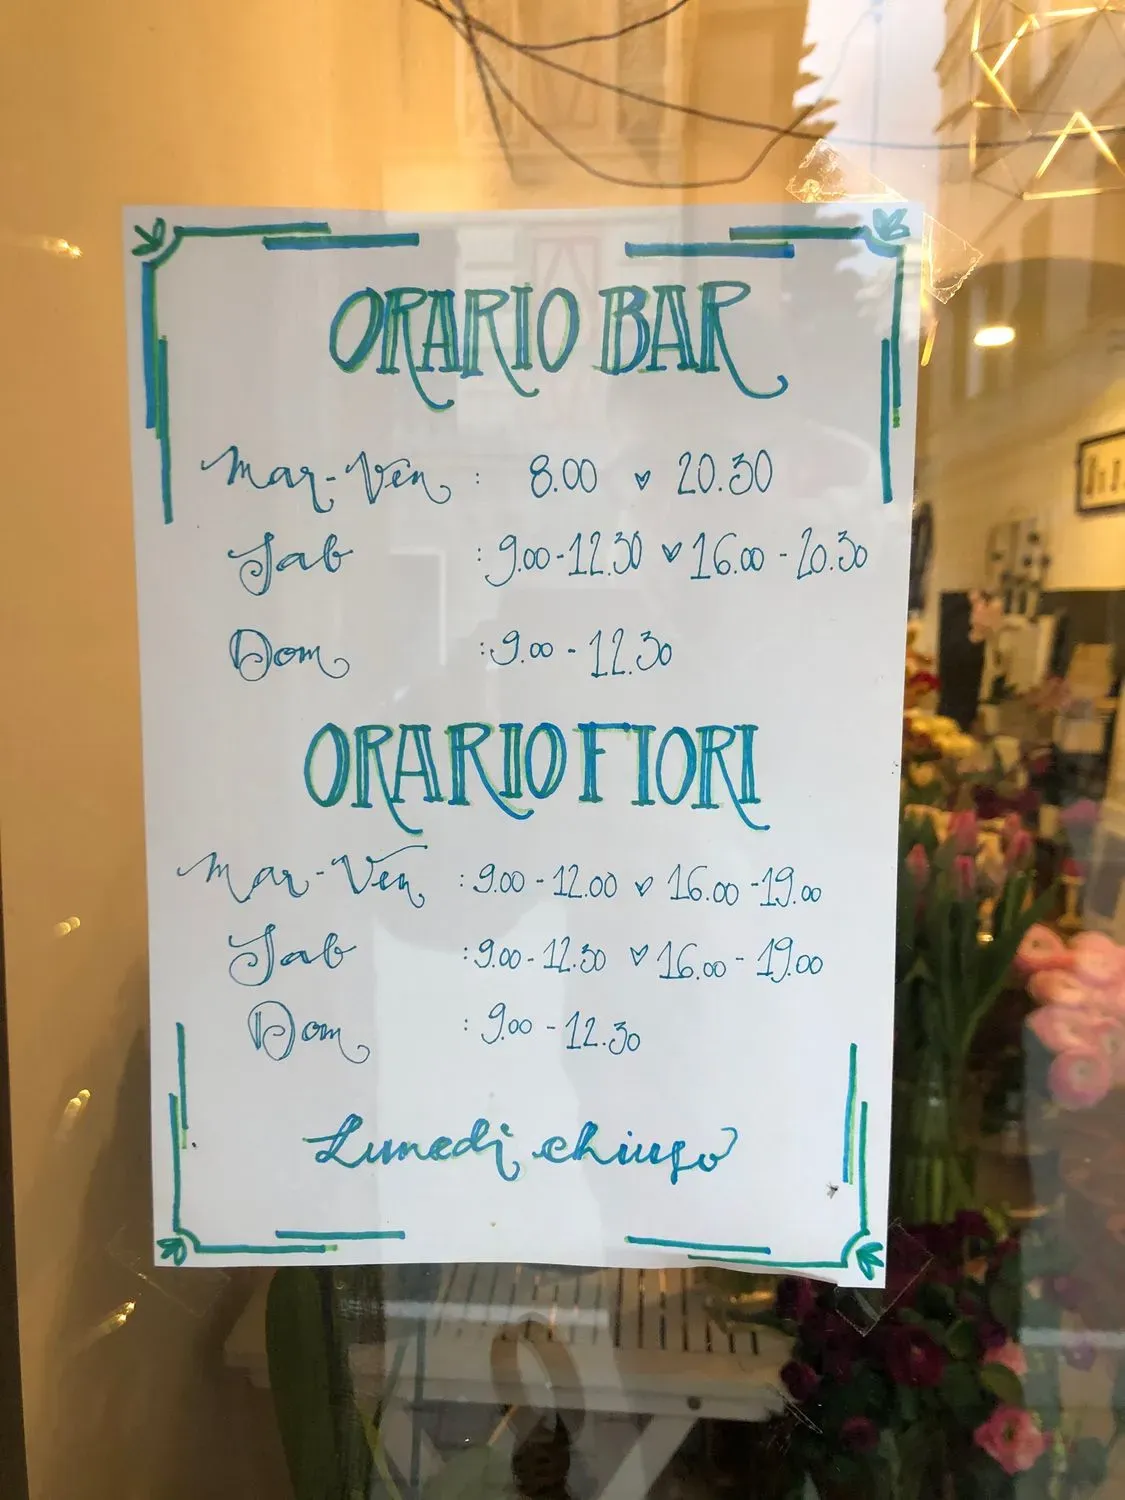 ORARIO BAR
Mar-Ven : 8.00 ♥ 20.30
Sab : 9.00-12.30 ♥ 16.00 - 20.30
Dom : 9.00 - 12.30
ORARIO FIORI
Mar-Ven : 9.00 - 12.00 ♥ 16.00 - 19.00
Sab : 9.00 - 12.30 ♥ 16.00 - 19.00
Dom : 9.00 - 12.30
Lunedì chiuso